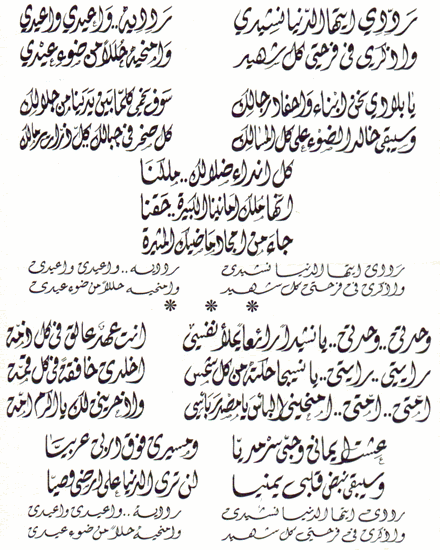 رددي ايتها الدنيا نشيدي ردديه .. واعيدي واعيدي
واذكري في فرحتي كل شهيد وامنحيه حللاً من ضوء عيدي
يا بلادي نحن ابناء واحفاد رجالك سوف نحمي كل ما بين يدينا من جلالك
وسيبقى خالد الضوء على كل المسالك كل صخر في جبالك كل ذرات رمالك
كل انداء ضلالك .. ملكنا
انها ملك امانينا الكبيرة .. حقنا
جاء من امجاد ماضيك المثيرة
رددي ايتها الدنيا نشيدي ردديه .. واعيدي واعيدي
واذكري في فرحتي كل شهيد وامنحيه حللاً من ضوء عيدي
* * *
وحدتي .. وحدتي .. يا نشيداً رائعاً يملأ نفسي انت عهد عالق في كل ذمه
رايتي .. رايتي .. يا نسيجاً حكته من كل شمس اخلدي خافقة في كل قمه
امتي .. امتي .. امنحيني البأس يا مصدر بأسي واذخريني لك يا اكرم امه
عشت ايماني وحبي سرمديا ومسيري فوق دربي عربيا
وسيبقى نبض قلبي يمنيا لن ترى الدنيا على ارضي وصيا
رددي ايتها الدنيا نشيدي ردديه .. واعيدي واعيدي
واذكري في فرحتي كل شهيد وامنحيه حللاً من ضوء عيدي